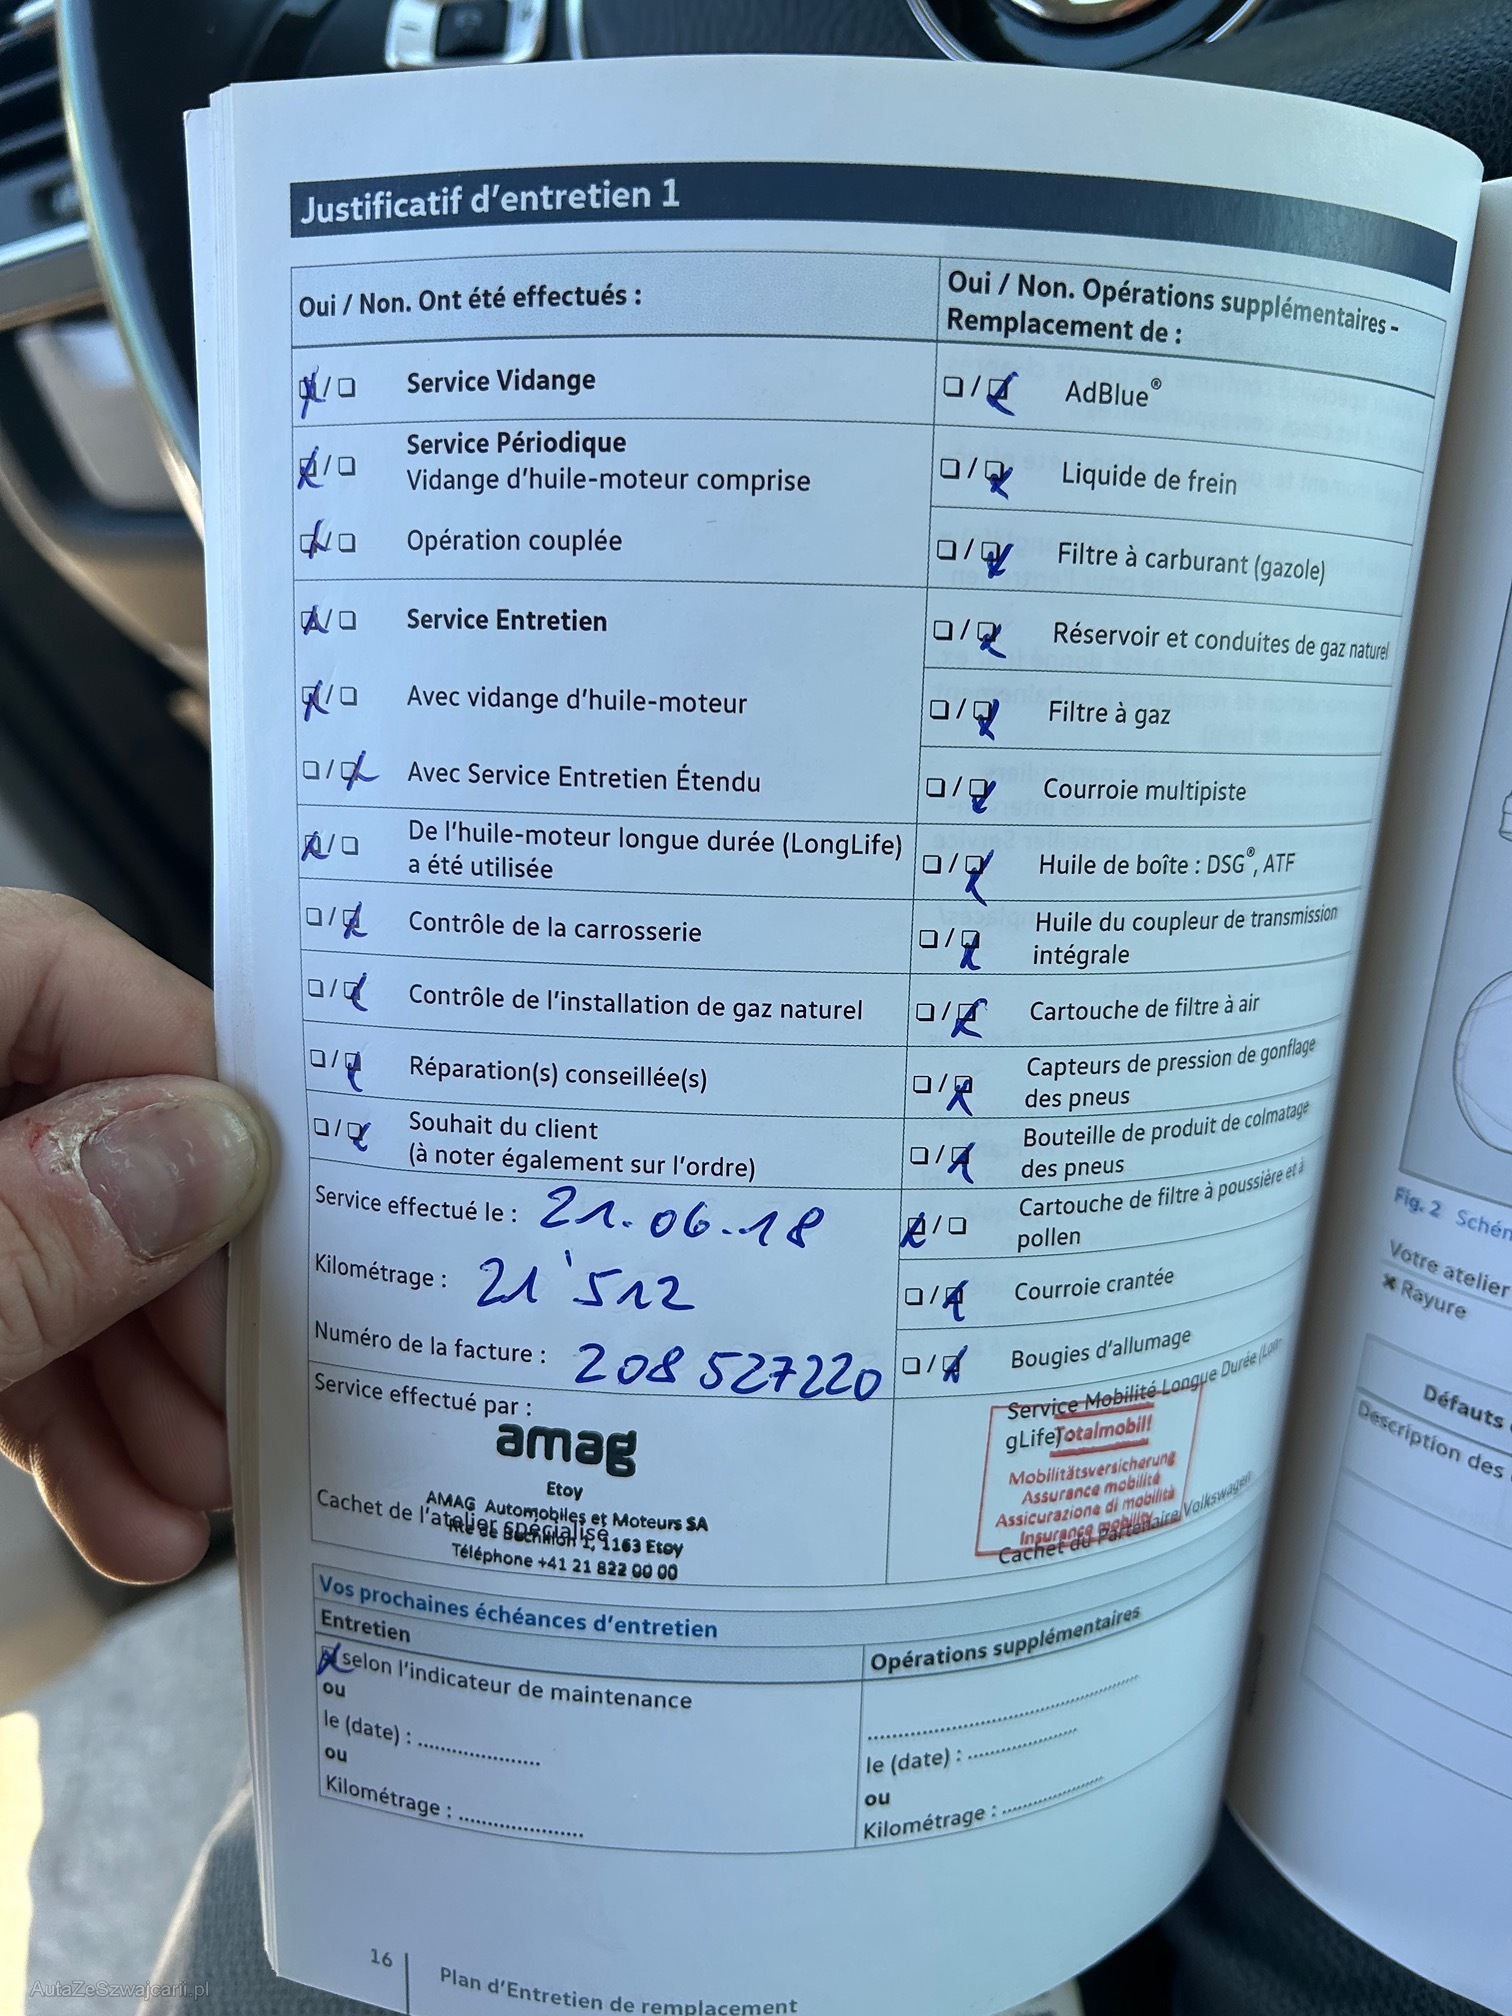 Justificatif d'entretien 1
Oui / Non. Ont été effectués :
Service Vidange
Service Périodique
Vidange d'huile-moteur comprise
Opération couplée
Service Entretien
Avec vidange d'huile-moteur
Avec Service Entretien Étendu
De l'huile-moteur longue durée (LongLife)
a été utilisée
Contrôle de la carrosserie
Contrôle de l'installation de gaz naturel
Réparation(s) conseillée(s)
Souhait du client
(à noter également sur l'ordre)
Service effectué le : 21.06.18
Kilométrage : 21'512
Numéro de la facture : 208 527220
Service effectué par :
amag
Etoy
AMAG Automobiles et Moteurs SA
Cachet de l'atelier spécialisé
1, 1163 Etoy
Téléphone +41 21 822 00 00
Oui / Non. Opérations supplémentaires -
Remplacement de :
AdBlue®
Liquide de frein
Filtre à carburant (gazole)
Réservoir et conduites de gaz naturel
Filtre à gaz
Courroie multipiste
Huile de boîte : DSG®, ATF
Huile du coupleur de transmission
intégrale
Cartouche de filtre à air
Capteurs de pression de gonflage
des pneus
Bouteille de produit de colmatage
des pneus
Cartouche de filtre à poussière et à
pollen
Courroie crantée
Bougies d'allumage
Service Mobilité Longue Durée (Lon-
gLife)
Totalmobil!
Mobilitätsversicherung
Assurance mobilité
Assicurazione di mobilità
Insurance mobility
Cachet du Partenaire Volkswagen
Vos prochaines échéances d'entretien
Entretien
selon l'indicateur de maintenance
ou
le (date) : ....................
ou
Kilométrage : ....................
Opérations supplémentaires
........................................
le (date) : ..................
ou
Kilométrage : ................
16
Plan d'Entretien de remplacement
Fig. 2 Schém
Votre atelier
✖ Rayure
Défauts
Description des
AutaZeSzwajcarii.pl